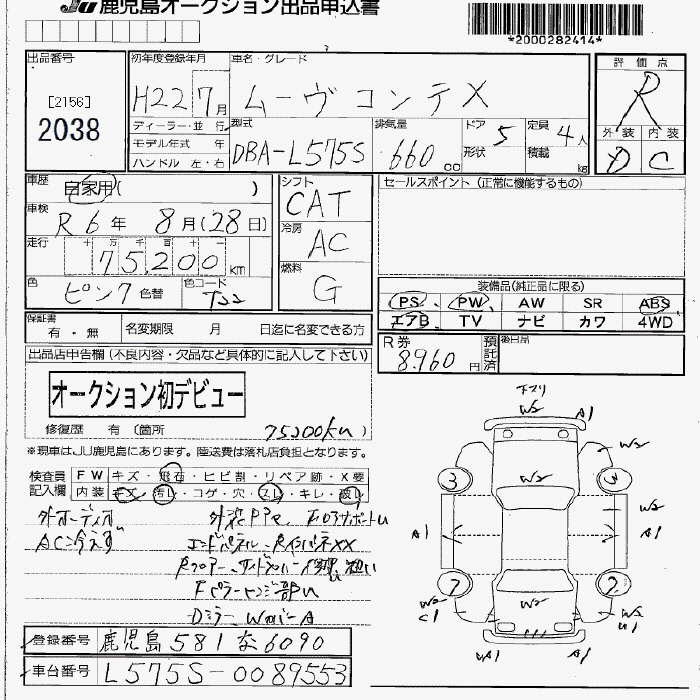 JU 鹿児島オークション出品申込書
*2000282414*
出品番号
[2156]
2038
初年度登録年月
H22 7月
車名・グレード
ムーヴコンテ X
評価点
R
外装 内装
D C
ディーラー・並行
モデル年式 年
ハンドル 左・右
型式
DBA-L575S
排気量
660 cc
ドア 形状
5
定員 積載
4人
kg
車歴
自家用( )
車検
R 6年 8月(28日)
走行
十 万 千 百 十 一
75,200 km
色
ピンク 色替
色コード
シフト
CAT
冷房
AC
燃料
G
セールスポイント (正常に機能するもの)
装備品(純正品に限る)
PS PW AW SR ABS
エアB TV ナビ カワ 4WD
保証書
有・無
名変期限 月 日迄に名変できる方
R券
8,960円
預託済
後日品
出品店申告欄 (不良内容・欠品など具体的に記入して下さい)
オークション初デビュー
修復歴 有 〔箇所
75200km
※現車はJU鹿児島にあります。陸送費は落札店負担となります。
検査員記入欄
FW キズ・飛石・ヒビ割・リペア跡・X要
内装 キズ・汚れ・コゲ・穴・スレ・キレ・破れ
外オーディオ
AC冷えず
エンドパネル
Dミラー
下マワリ
W2 W2 A1
W2
3 3
W2
A1 A1
7 7
W2 W2 W2
C1 U1
A1 A1
登録番号 鹿児島 581 な 6090
車台番号 L575S-0089553